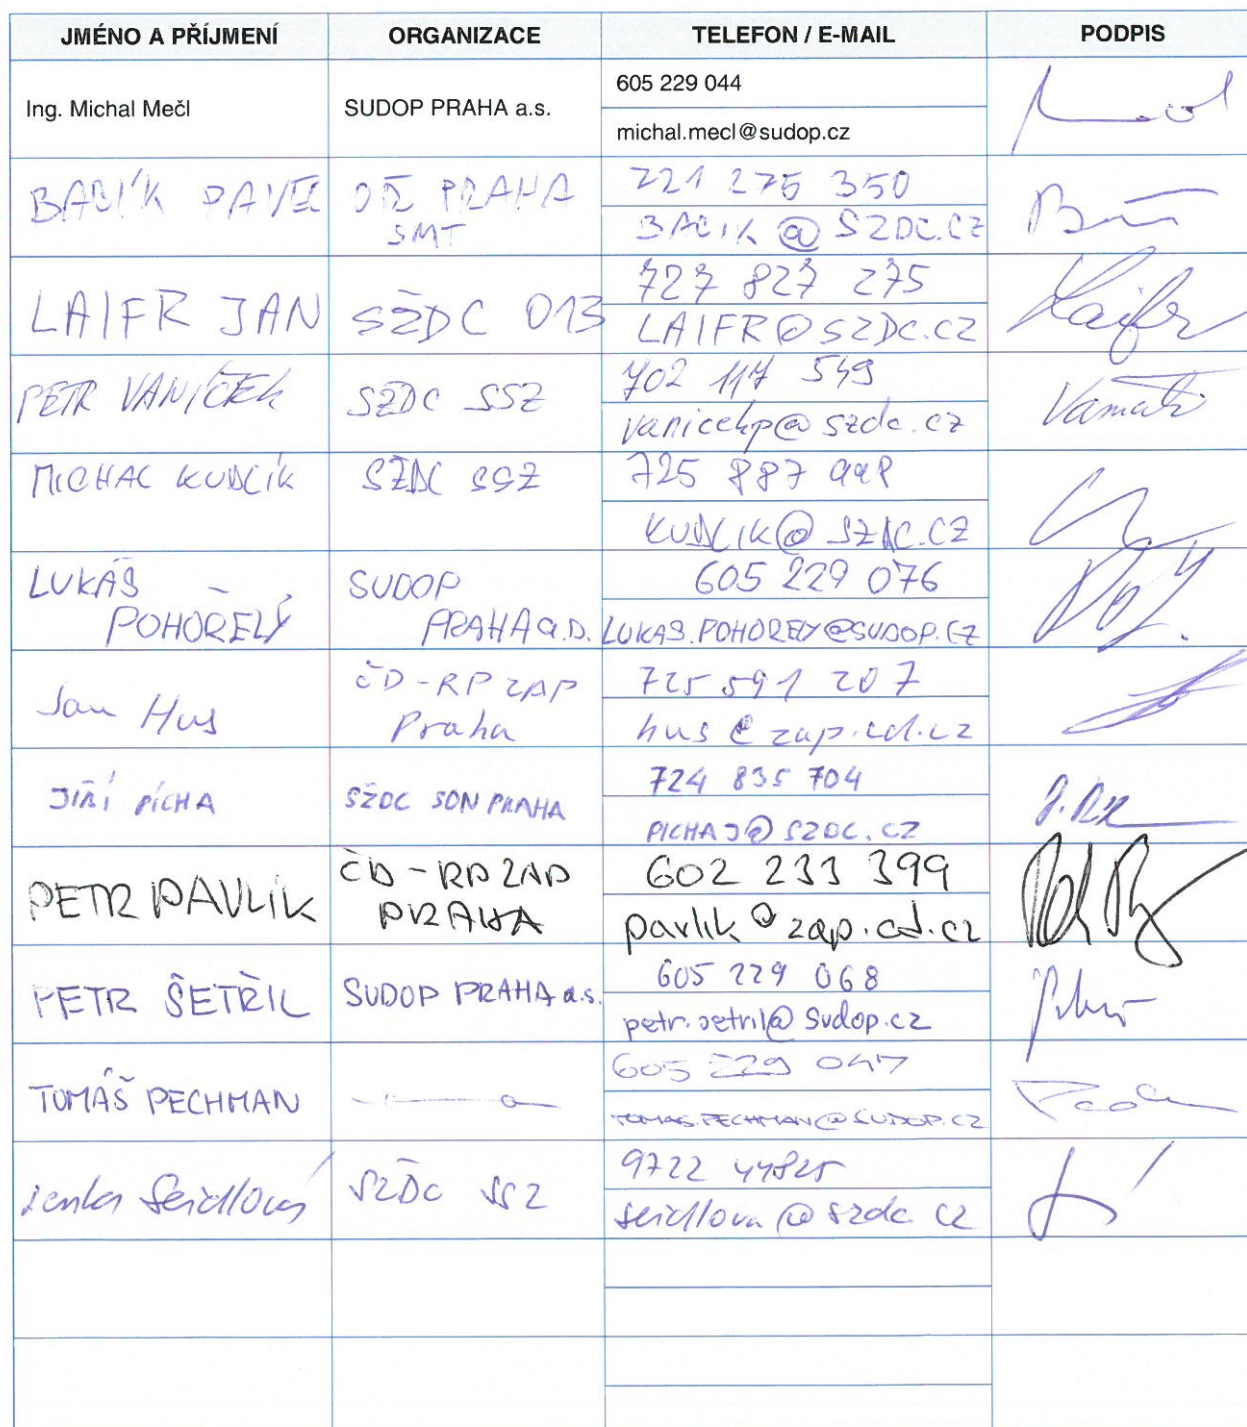 JMÉNO A PŘÍJMENÍ ORGANIZACE TELEFON / E-MAIL PODPIS
Ing. Michal Mečl SUDOP PRAHA a.s. 605 229 044
michal.mecl@sudop.cz
BACÍK PAVEL OŘ PRAHA 221 275 350
SMT BACIK@SZDC.CZ
LAIFR JAN SŽDC O13 727 827 275
LAIFR@SZDC.CZ
PETR VANÍČEK SŽDC SSZ 702 117 549
vanicekp@szdc.cz
MICHAL KUDLÍK SŽDC SSZ 725 887 998
KUDLIK@SZDC.CZ
LUKÁŠ SUDOP 605 229 076
POHOŘELÝ PRAHA a.s. LUKAS.POHORELY@SUDOP.CZ
Jan Hus ČD-RP ZAP 725 591 207
Praha hus@zap.cd.cz
JIŘÍ PÍCHA SŽDC SON PRAHA 724 835 704
PICHAJ@SZDC.CZ
PETR PAVLÍK ČD-RP ZAP 602 233 399
PRAHA pavlik@zap.cd.cz
PETR ŠETŘIL SUDOP PRAHA a.s. 605 229 068
petr.setril@sudop.cz
TOMÁŠ PECHMAN 605 229 047
TOMAS.PECHMAN@SUDOP.CZ
Lenka Seidlová SŽDC SSZ 9722 44825
seidlova@szdc.cz